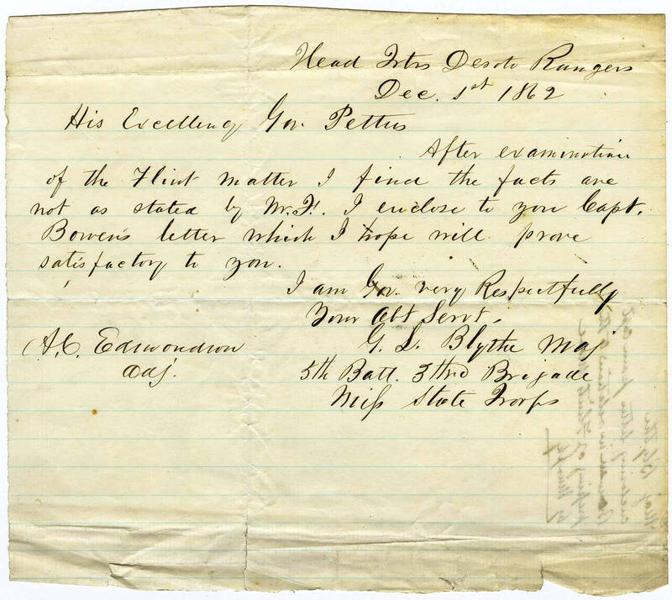 Head Qrtrs Desoto Rangers
Dec. 1st 1862
His Excellency Gov. Pettus
After examination
of the Flint matter I find the facts are
not as stated by Mr. F. I enclose to you Capt.
Bowen's letter which I hope will prove
satisfactory to you.
I am Gov. very Respectfully
Your Obt Servt.
G. L. Blythe Maj
A. C. Edmondson
Adj.
5th Batt. 3thrd Brigade
Miss State Troops